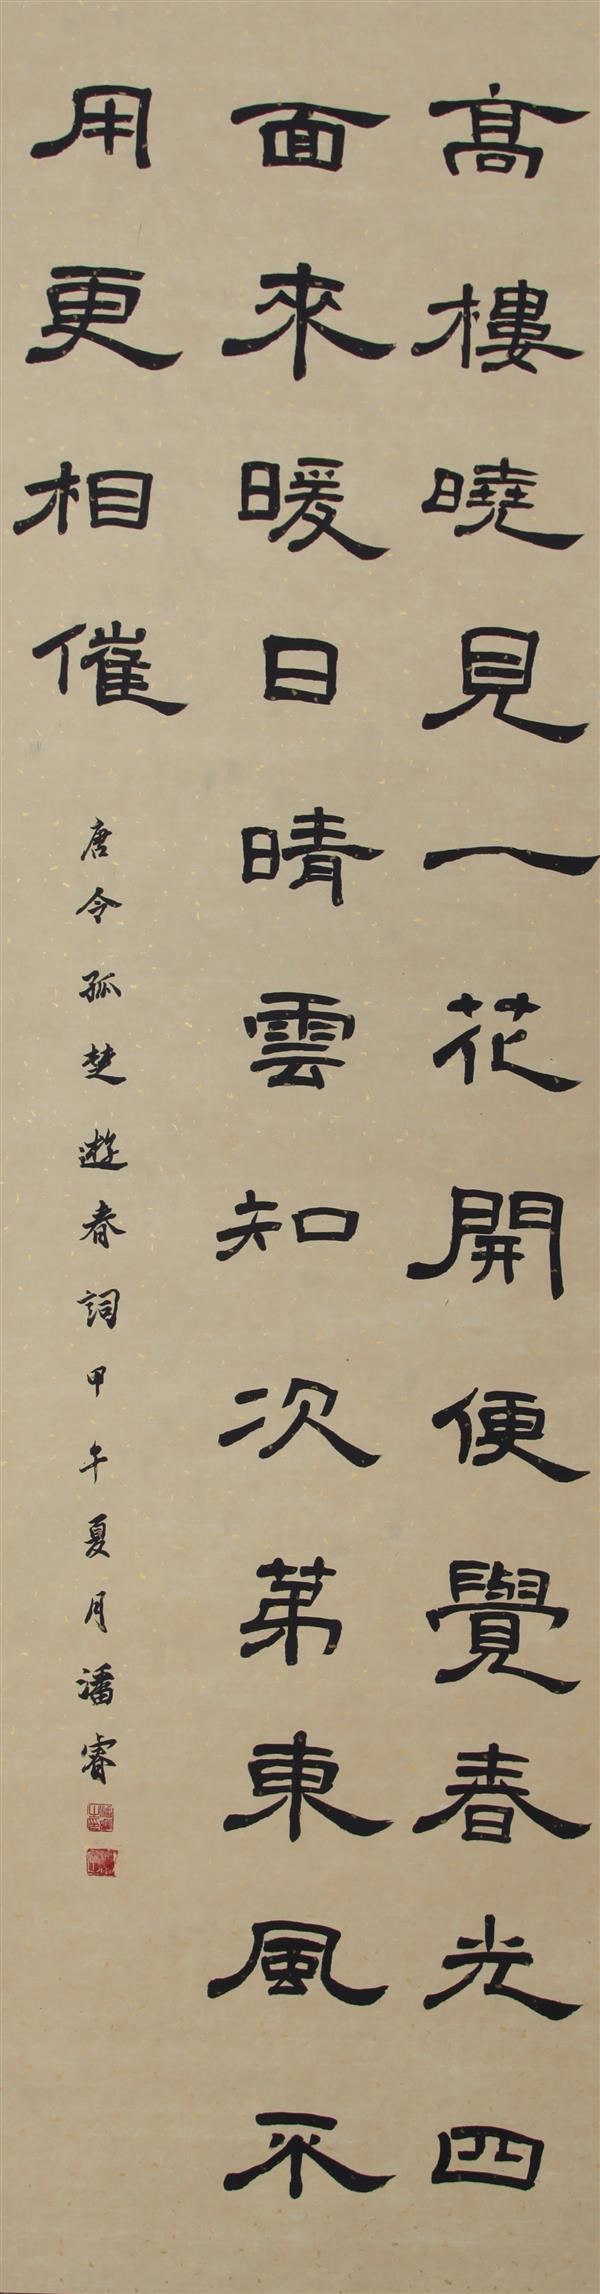 高樓曉見一花開便覺春光四
面來暖日晴雲知次第東風不
用更相催
唐令狐楚遊春詞甲午夏月潘睿